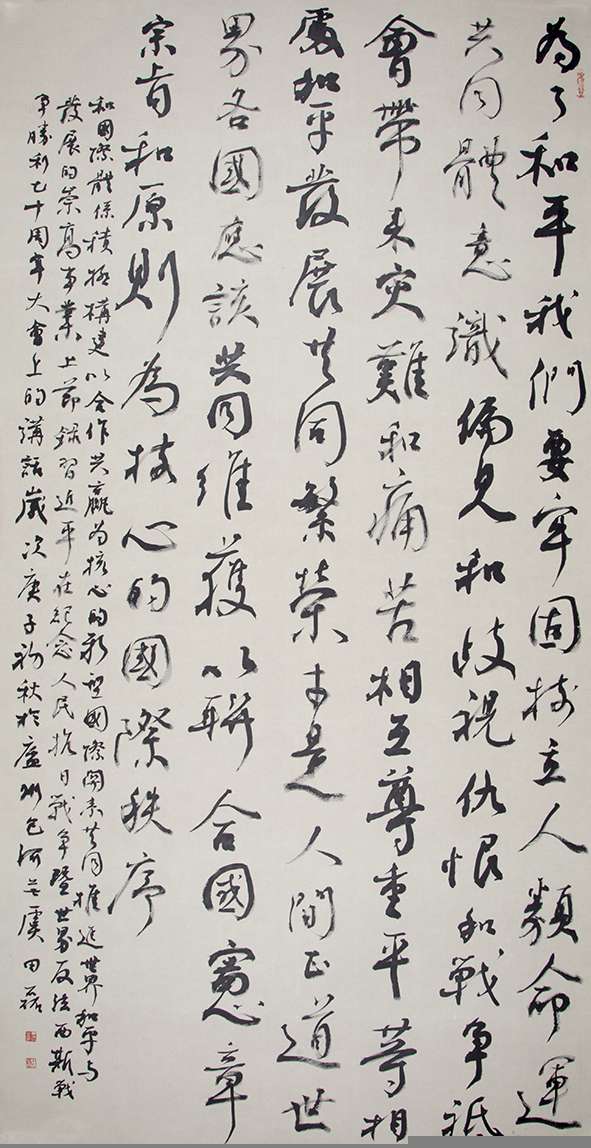 為了和平我們要牢固樹立人類命運
共同體意識偏見和歧視仇恨和戰爭祇
會帶來災難和痛苦相互尊重平等相
處和平發展共同繁榮才是人間正道世
界各國應該共同維護以聯合國憲章
宗旨和原則為核心的國際秩序
和國際體係積極構建以合作共贏為核心的新型國際關系共同推進世界和平与
發展的崇高事業上節錄習近平在紀念人民抗日戰爭暨世界反法西斯戰
爭勝利七十周年大會上的講話歲次庚子初秋於廬州包河
田磊